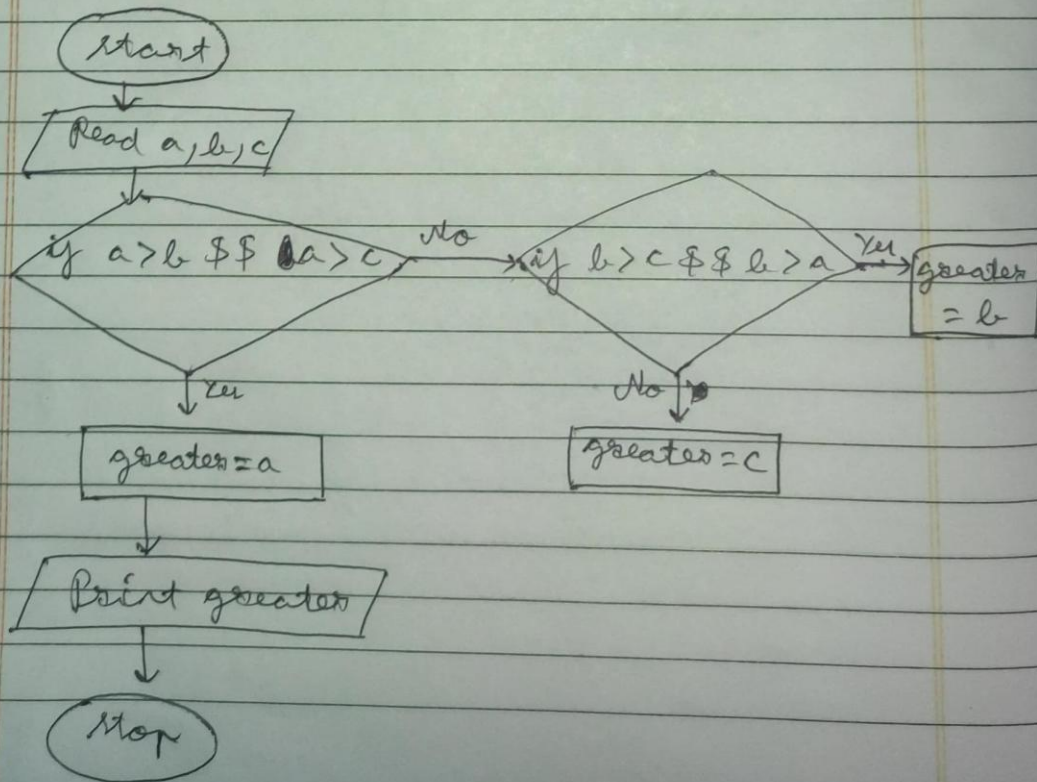 Start
Read a, b, c
if a > b $$ a > c
No
if b > c $$ b > a
Yes
greater
= b
Yes
No
greater = a
greater = c
Print greater
Stop